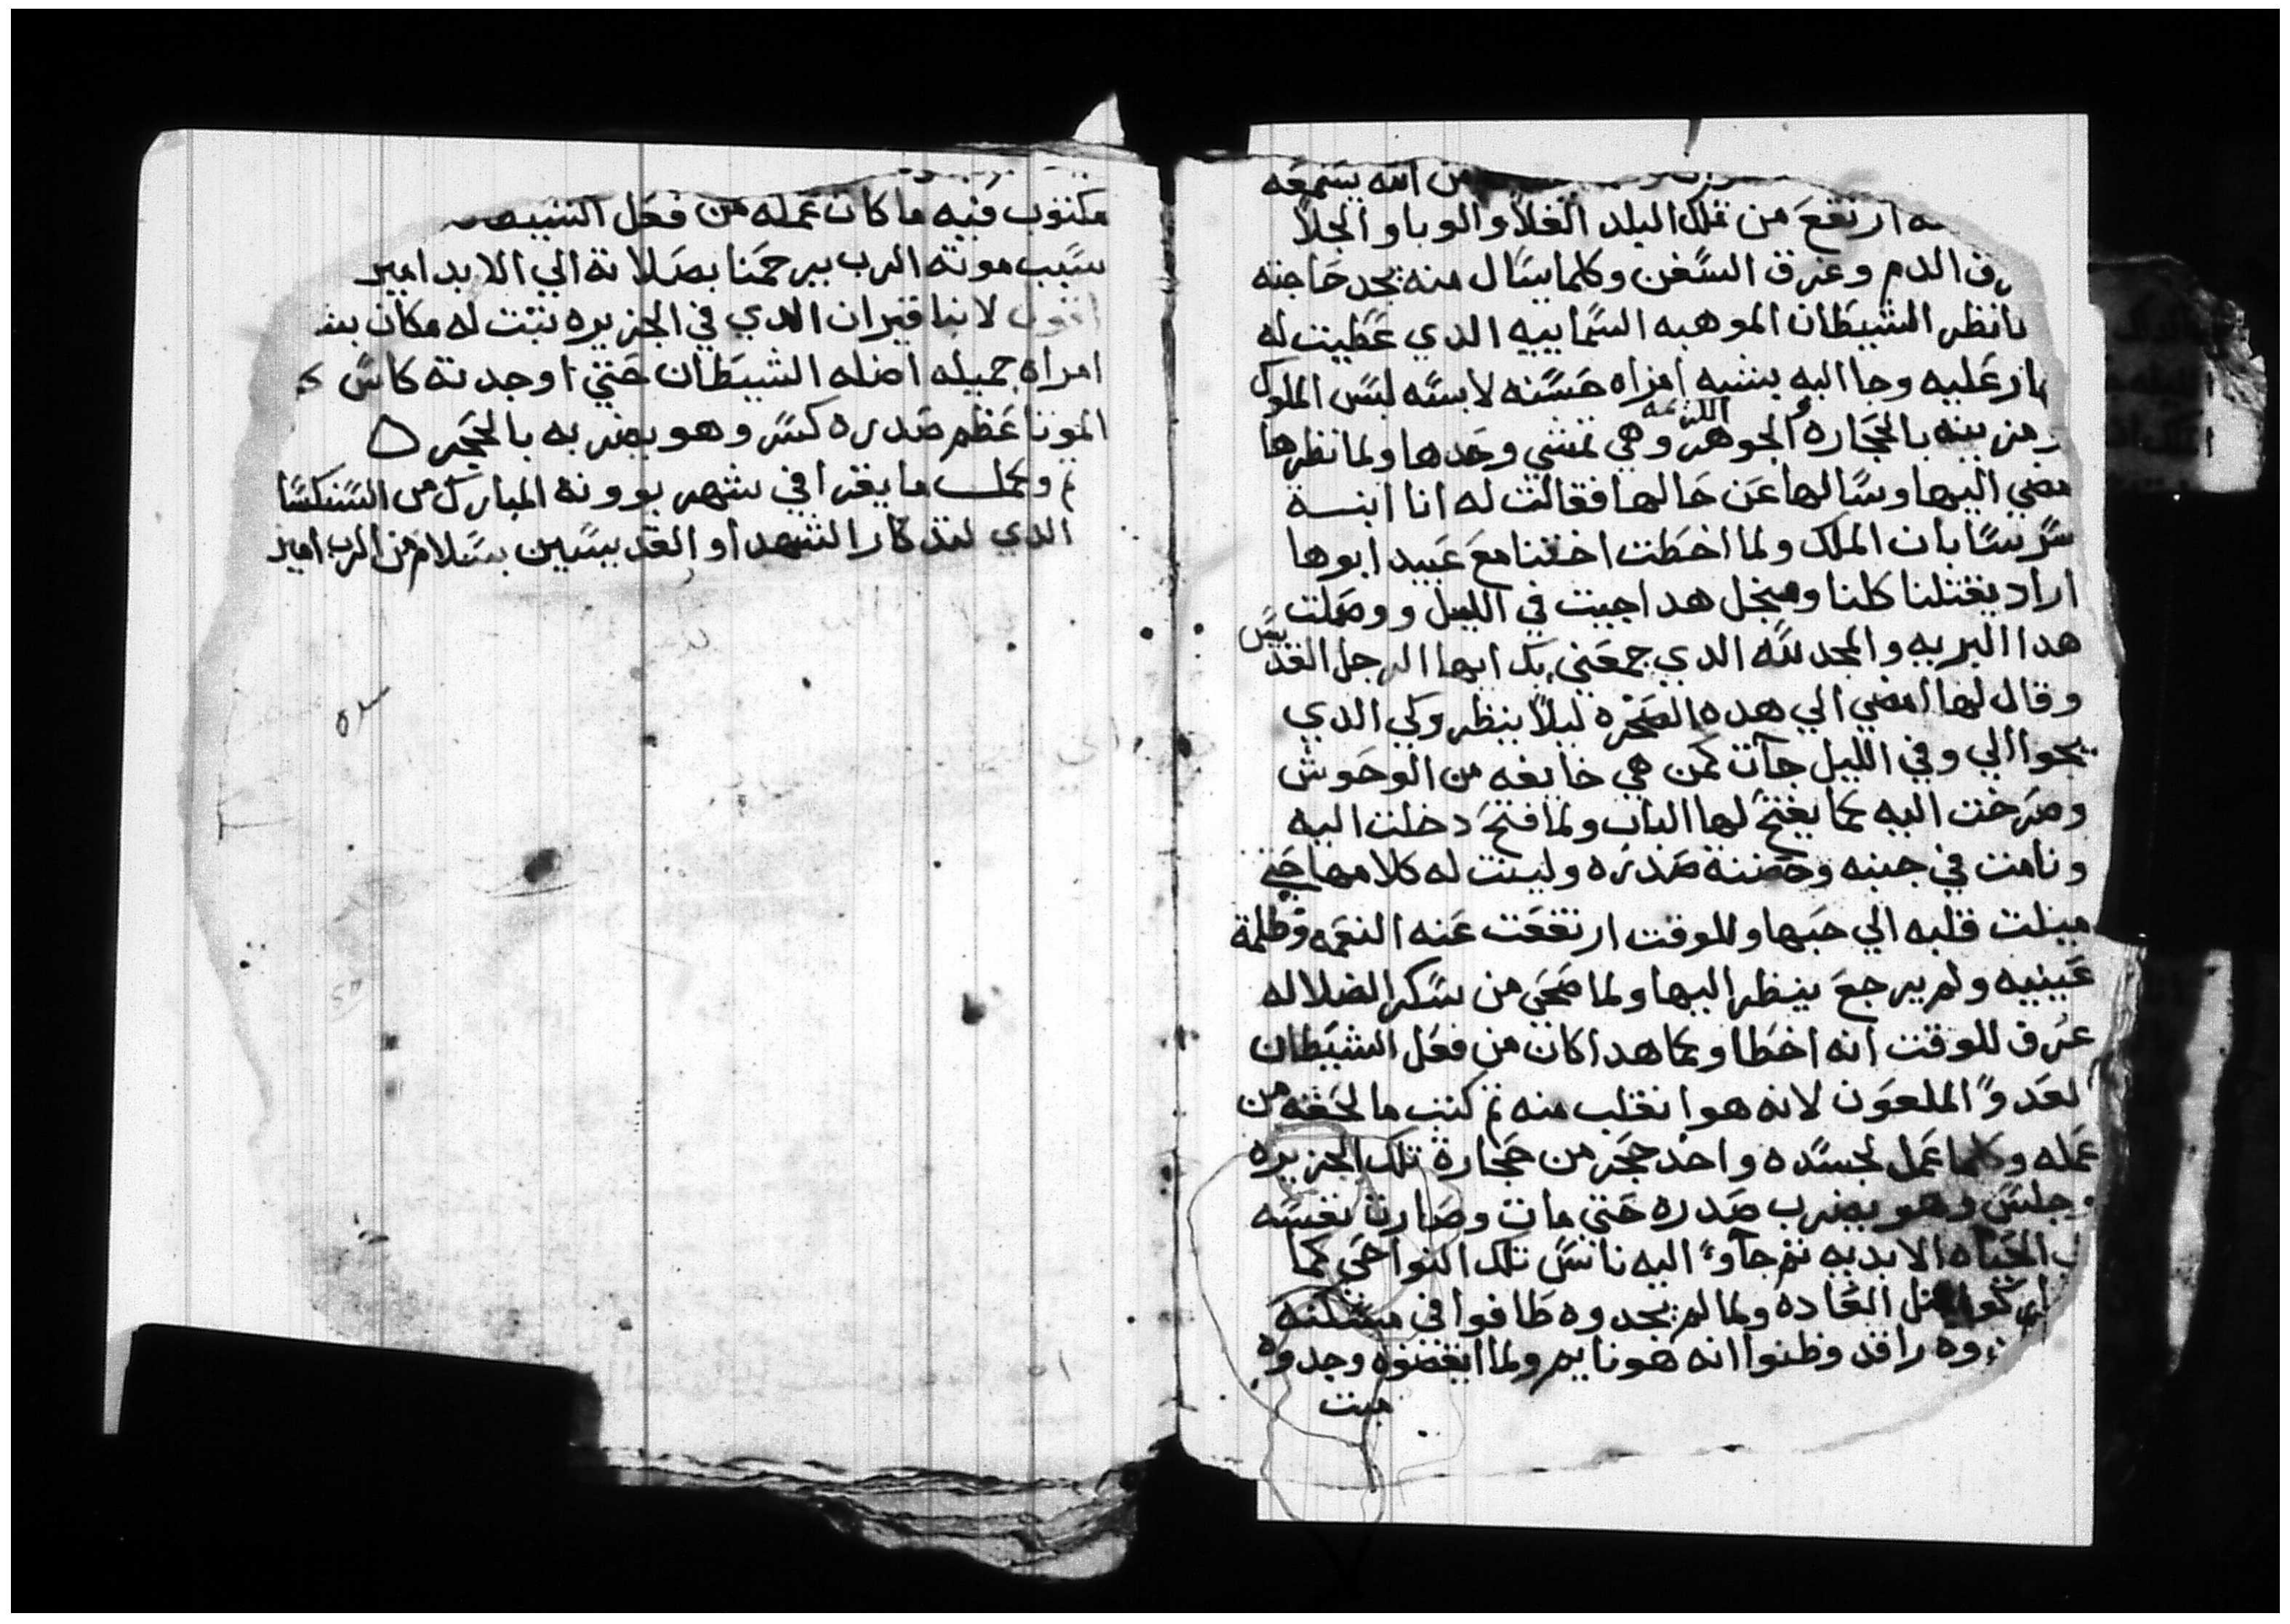 من الله يسمعه
ارتفع من تلك البلد الغلا والوبا والجلا
الدم وغرق السفن وكلما يسال منه يجد حاجته
نظر الشيطان الموهبه السماييه الدي عطيت له
عليه وجا اليه بشبه امراه حسنه لابسه لبس الملوك
من ينه بالحجاره الجوهر الكريمه وهي تمشي وحدها ولما نظرها
مضي اليها وسالها عن حالها فقالت له انا ابنة
بان الملك ولما اخطت اختنا مع عبيد ابوها
اراد يقتلنا كلنا ومنجل هدا جيت في الليل ووصلت
هدا البريه والمجد لله الدي جمعني بك ايها الرجل القديس
وقال لها امضي الي هده الصخره ليلا ينظروكي الدي
يجوا الي وفي الليل جآت كمن هي خايفه من الوحوش
وصرخت اليه كما يفتح لها الباب ولما فتح دخلت اليه
ونامت في جنبه وحضنة صدره ولينت له كلامها حتي
ميلت قلبه الي حبها وللوقت ارتفعت عنه النعمه وظلمة
عينيه ولم يرجع ينظر اليها ولما صحي من سكر الضلاله
عرف للوقت انه اخطا وكما هدا كان من فعل الشيطان
لعدوا الملعون لانه هو انغلب منه ثم كتب ما لحقه من
عمله وكلما عمل لجسده واخد حجر من حجارة تلك الجزيره
وجلس وهو يضرب صدره حتي مات وصارت نفسه
الحياه الابديه ثم جآوا اليه ناس تلك النواحي كما
العاده ولما لم يجدوه طافوا في مسكنه
وه راقد وظنوا انه هو نايم ولما ايقضوه وجدوه
ميت
مكتوب فيه ما كان عمله من فعل الشيطان
سبب موته الرب يرحمنا بصلاته الي الابد امين
لانبا قيران الدي في الجزيره نبت له مكان
امراه جميله اضله الشيطان حتي اوجدته كاس
الموتا عظم صدره كسر وهو يضربه بالحجر
تم وكمل ما يقرا في شهر بوونه المبارك من السنكسا
الدي لتذكار الشهدا والقديسين بسلام من الرب امين